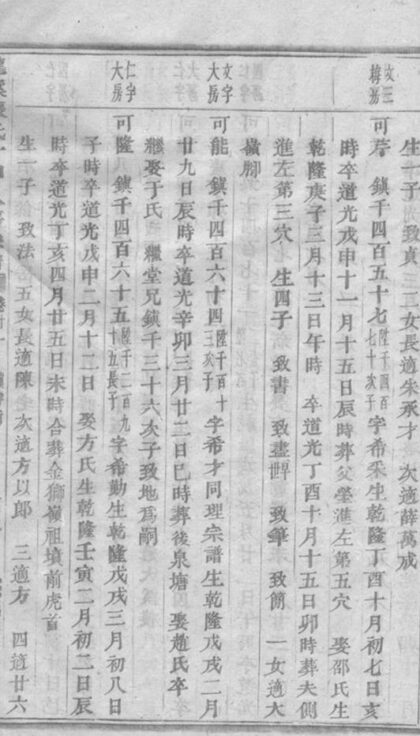 生一子 致貞 三女長適朱承才 次適薛萬成
文三
房
可 鎮千四百五十七
陞千四百
七十次子
字希采生乾隆丁酉十月初七日亥
時卒道光戊申十一月十五日辰時葬父塋進左第五穴 娶邵氏生
乾隆庚子三月十三日午時 卒道光丁酉十月十五日卯時葬夫側
進左第三穴 生四子 致書 致盡 致 致簡 一女適大
橫腳
文字
大房
可能 鎮千四百六十四
陞千百十
三次子
字希才同理宗譜生乾隆戊戌二月
廿九日辰時卒道光辛卯三月廿二日巳時葬後泉塘 娶趙氏卒
繼娶于氏 繼堂兄鎮千三十六次子致地為嗣
仁字
大房
可隆 鎮千四百六十五
陞千二百九
十五長子
字希勤生乾隆戊戌三月初八日
子時卒道光戊申二月十二日 娶方氏生乾隆壬寅二月初二日辰
時卒道光丁亥四月廿五日未時合葬金獅嶺祖墳前虎首
生一子 致法 五女長適陳 次適方以郎 三適方 四適廿六